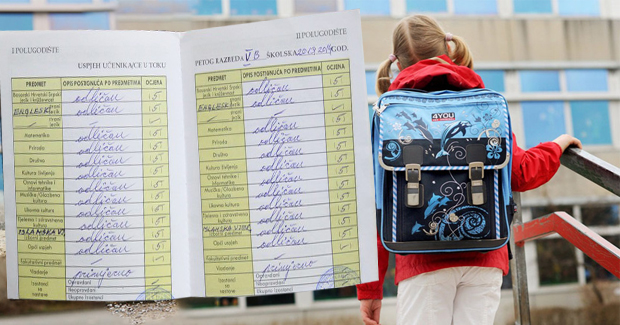 I POLUGODIŠTE
USPJEH UČENIKA/CE U TOKU
PREDMET OPIS POSTIGNUĆA PO PREDMETIMA OCJENA
Bosanski Hrvatski Srpski jezik i književnost odličan 5
ENGLESKI odličan 5
Strani jezik
Matematika odličan 5
Priroda odličan 5
Društvo odličan 5
Kultura življenja odličan 5
Osnovi tehnike i informatike odličan 5
Muzička/Glazbena kultura odličan 5
Likovna kultura odličan 5
Tjelesni i zdravstveni odgoj odličan 5
ISLAMSKA VJ. odličan 5
Izborni predmet
Opći uspjeh odličan 5
Fakultativni predmet
Vladanje primjerno
Izostanci sa nastave
Opravdani
Neopravdani
Ukupno (zbir)
PETOG RAZREDA V B ŠKOLSKA 2019 GOD.
II POLUGODIŠTE
PREDMET OPIS POSTIGNUĆA PO PREDMETIMA OCJENA
Bosanski Hrvatski Srpski jezik i književnost odličan 5
ENGLESKI odličan 5
Strani jezik
Matematika odličan 5
Priroda odličan 5
Društvo odličan 5
Kultura življenja odličan 5
Osnovi tehnike i informatike odličan 5
Muzička/Glazbena kultura odličan 5
Likovna kultura odličan 5
odličan 5
ISLAMSKA VJ. odličan 5
Izborni predmet
Opći uspjeh odličan 5
Fakultativni predmet
Vladanje primjerno
Izostanci sa nastave
Opravdani
Neopravdani
Ukupno (zbir)
4YOU